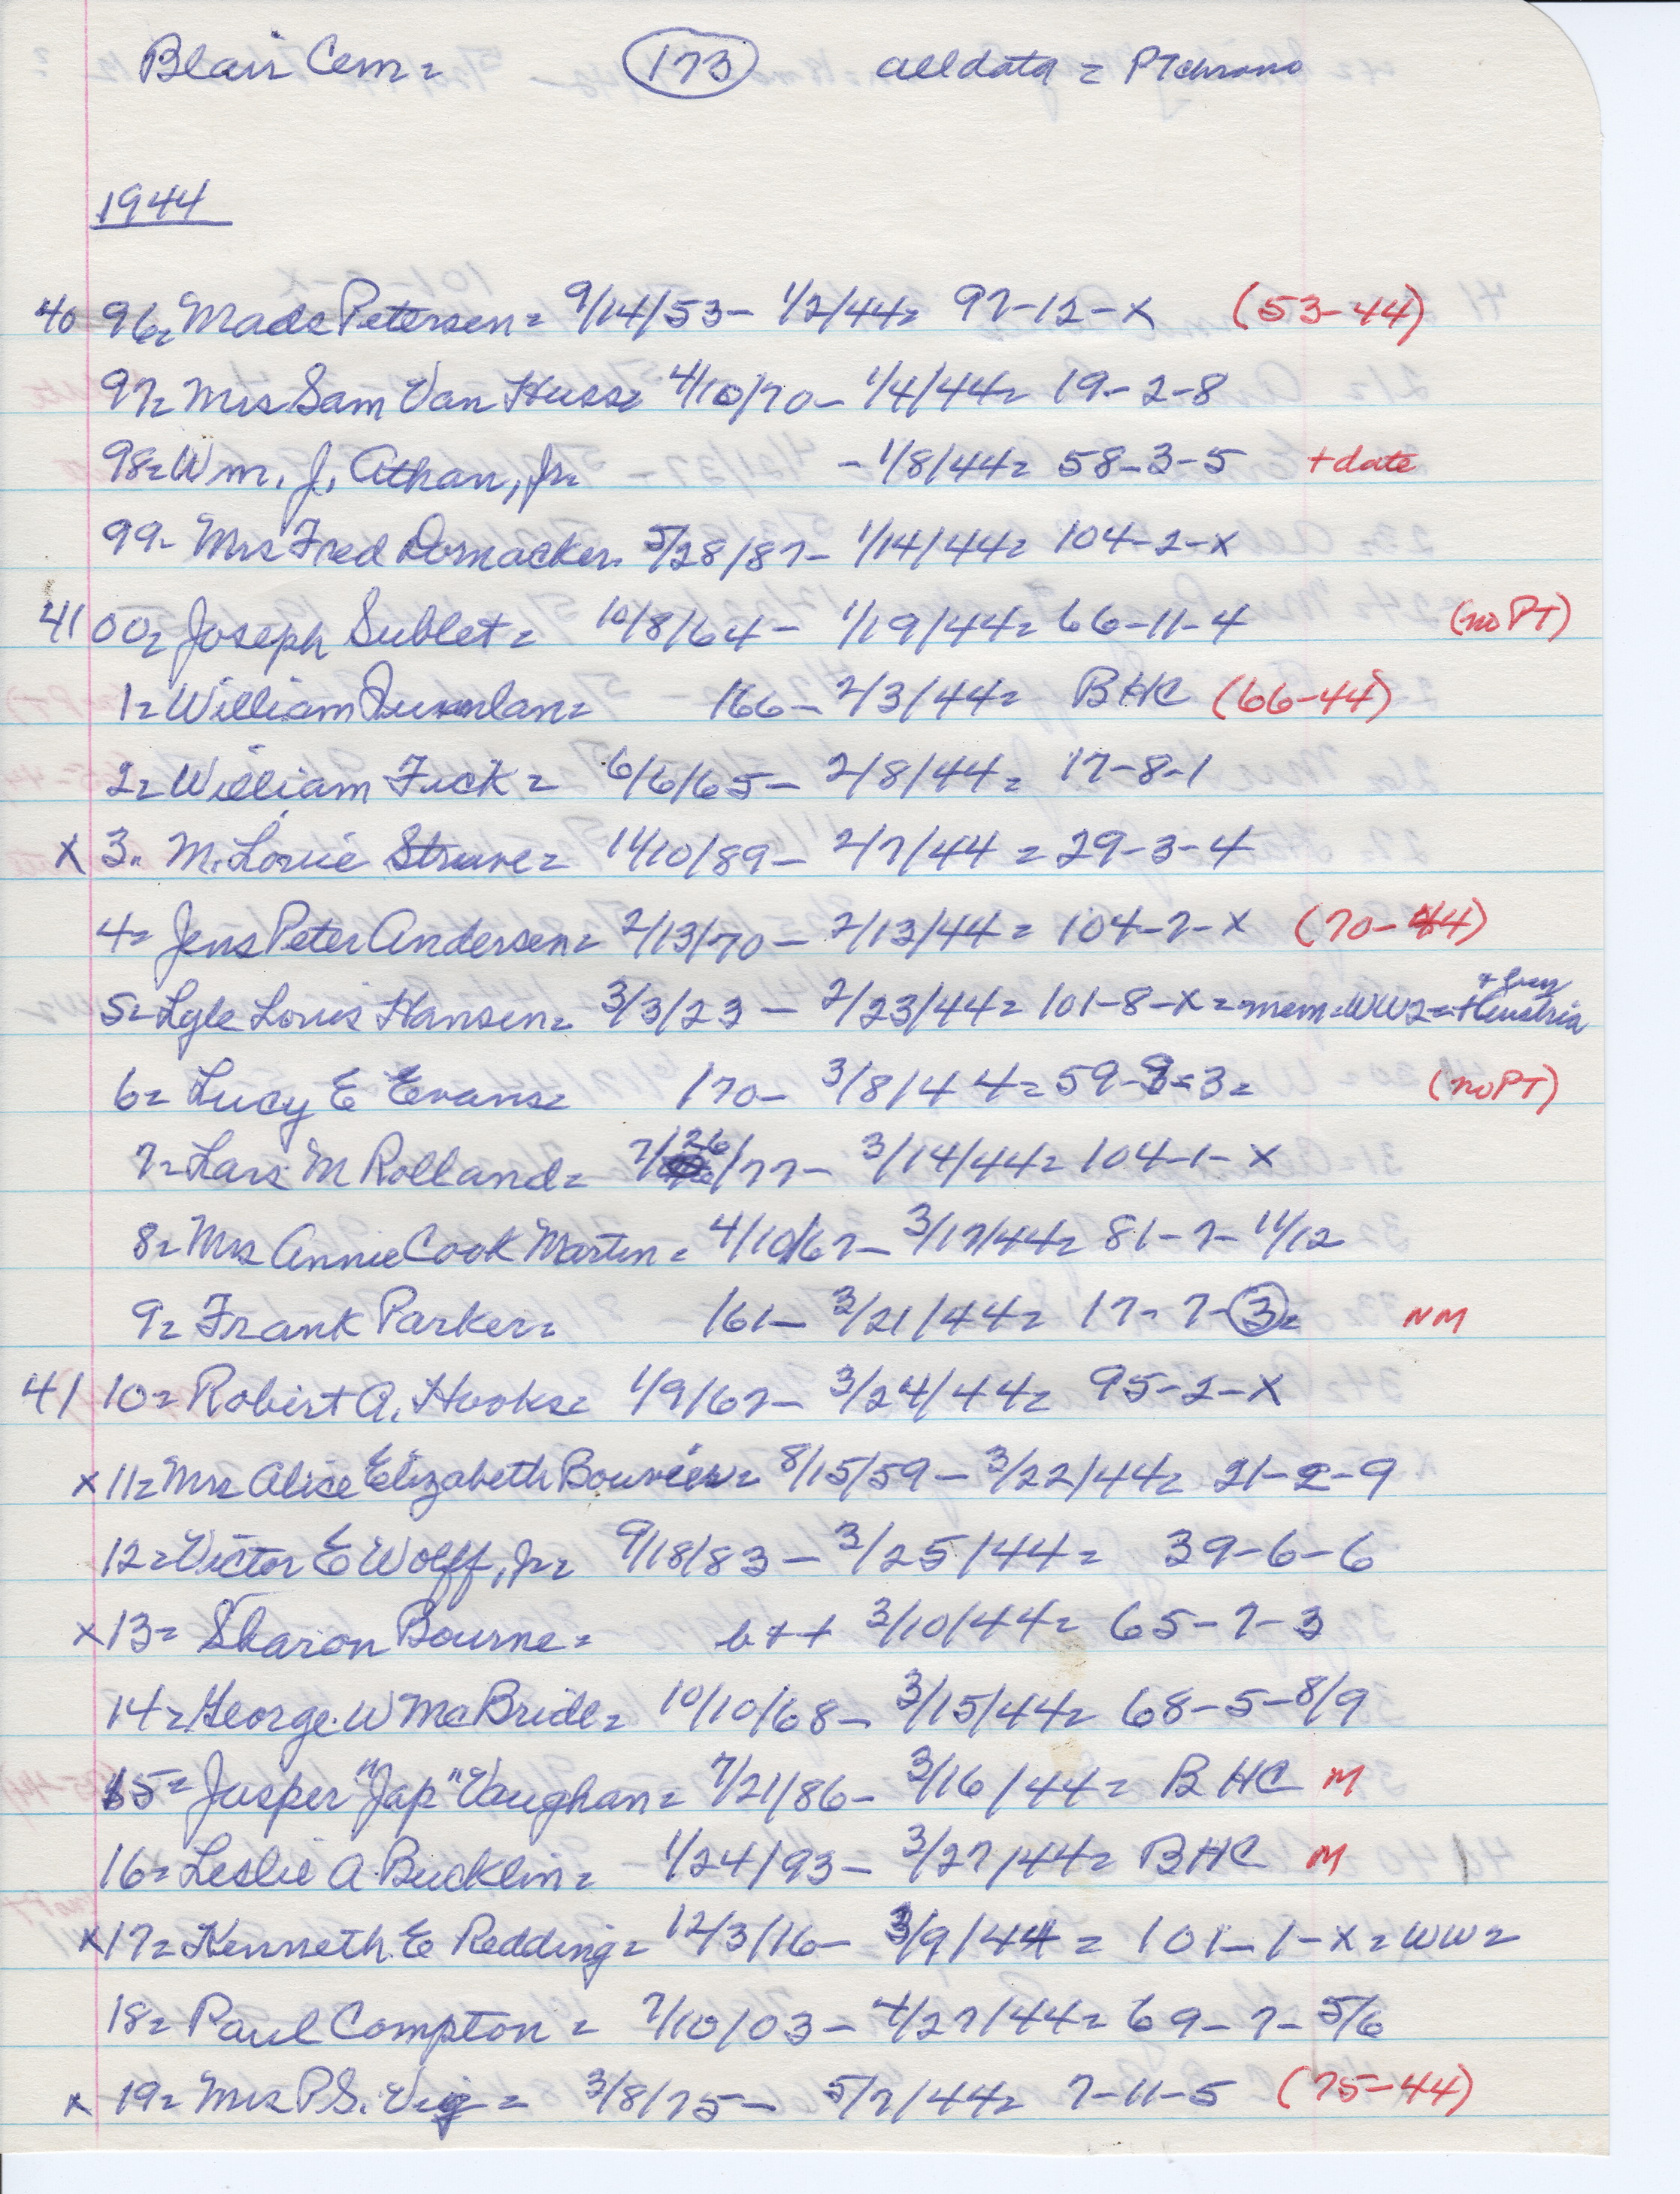 Blair Cem= 173 all data = PT chrono
1944
40 96= Mads Petersen= 9/14/53- 1/2/44= 97-12-x (53-44)
97= Mrs Sam Van Huss= 4/10/70- 1/4/44= 19-2-8
98= Wm. J. Athan, Jr= -1/8/44= 58-3-5 +date
99- Mrs Fred Dornacker. 5/28/87- 1/14/44= 104-2-x
41 00= Joseph Sublet= 10/8/64- 1/19/44= 66-11-4 (no PT)
1= William 166- 2/3/44= BHC (66-44)
2= William Fick= 6/6/65- 2/8/44= 17-8-1
x 3. M. Lovie Struve= 11/10/89- 2/7/44 = 29-3-4
4= Jens Peter Andersen= 2/13/70- 2/13/44= 104-7-x (70-44)
5= Lyle Louis Hansen= 3/3/23 - 2/23/44= 101-8-x=mem=WW2= Austria
6= Lucy E Evans= 170- 3/8/44=59-3=3= (no PT)
7= Lars M Rolland= 7/26/77- 3/14/44= 104-1-x
8= Mrs Annie Cook Martin= 4/10/67- 3/17/44= 81-7-11/12
9= Frank Parker= 161- 3/21/44= 17-7-3= NM
41 10= Robert A. Hooks= 1/9/67- 3/24/44= 95-2-x
x 11= Mrs Alice Elizabeth 8/15/59- 3/22/44= 21-2-9
12= Victor E Wolff, Jr= 9/18/83- 3/25/44= 39-6-6
x 13= Sharon Bourne= b++ 3/10/44= 65-7-3
14= George W McBride= 10/10/68- 3/15/44= 68-5-8/9
15= Jasper "Jap" Vaughan= 7/21/86- 3/16/44= BHC M
16= Leslie A Bucklin= 1/24/93- 3/27/44= BHC M
x 17= Kenneth E Redding= 12/3/16- 3/9/44= 101-1-x=WW2
18= Paul Compton= 7/10/03- 4/27/44= 69-7-5/6
x 19= Mrs P.S. Vig= 3/8/75- 5/7/44= 7-11-5 (75-44)